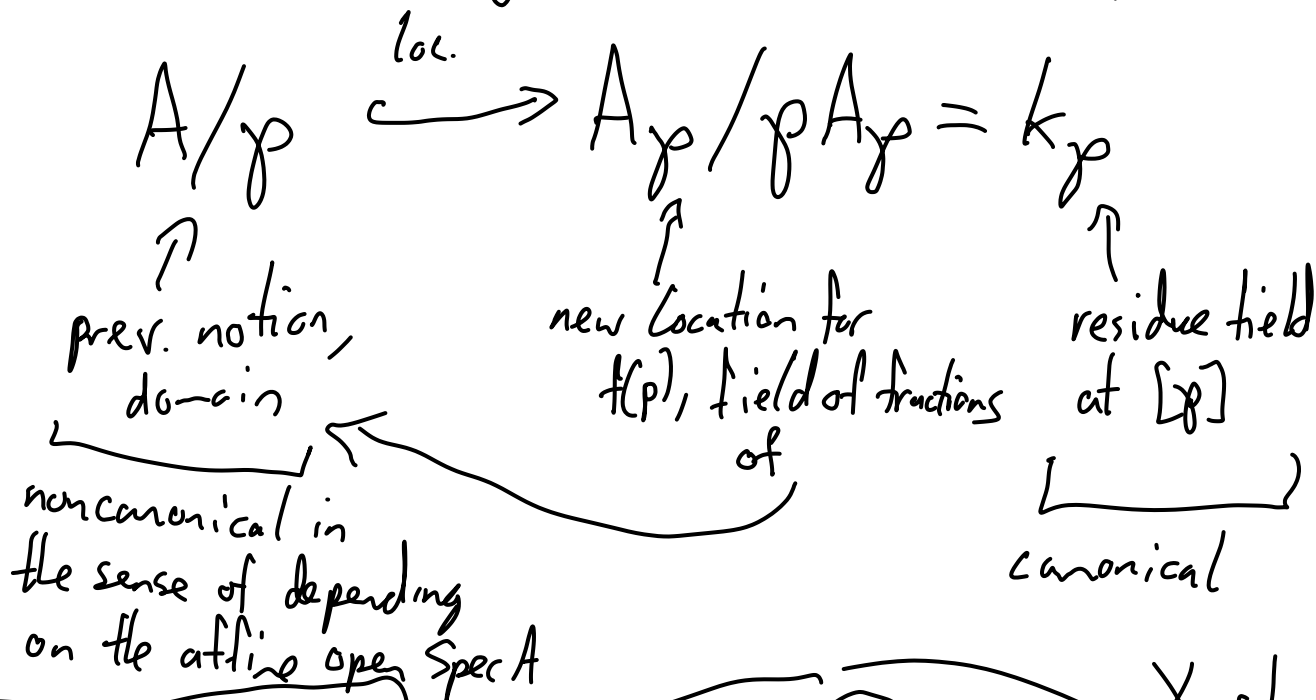 loc.
A/𝔭 ↪ A_𝔭/𝔭A_𝔭 = k_𝔭
prev. notion,
domain
new location for
f(p), field of fractions
of
residue field
at [𝔭]
noncanonical in
the sense of depending
on the affine open Spec A
canonical